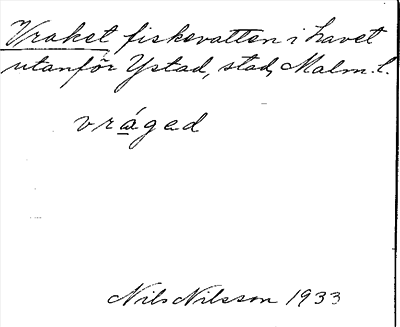 Vraket fiskevatten i havet
utanför Ystad, stad, Malm. l.
vráged
Nils Nilsson 1933